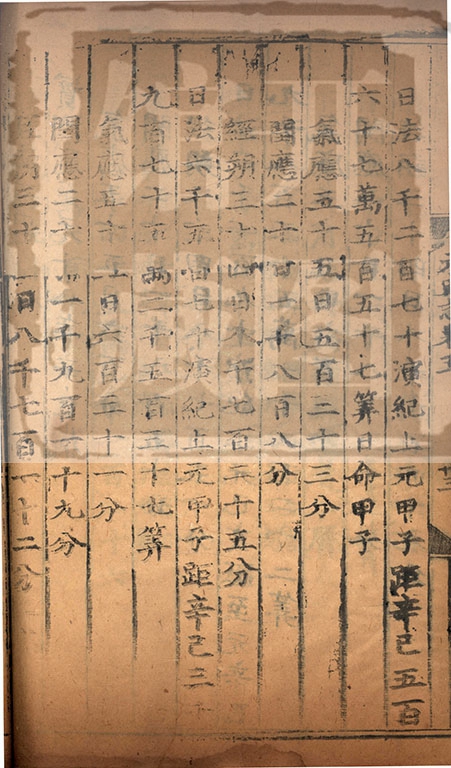 日法八千二百七十演紀上元甲子距辛巳五百
六十七萬五百五十七筭日命甲子
氣應五十五日五百二十三分
閏應二十日一千八百八分
經朔三十四日千七百二十五分
日法六千五百七十演紀上元甲子距辛巳三
九百七十五萬二千五百三十七筭
氣應五十五日六百三十一分
閏應二一千九百一十九分
三十日八千七百一十二分